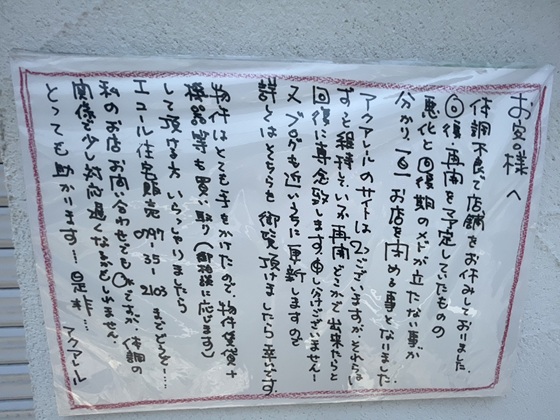 お客様へ
体調不良で店舗をお休みしておりました。
回復・再開を予定していたものの
悪化と回復期のメドが立たない事が
分かり、一旦お店を閉める事となりました。
アクアレールのサイトは2つございますがそれらは
ずっと維持していい再開どこかで出来たらと
回復に専念致します。申し分けございません!
又ブログも近いうちに更新しますので
詳しくはどちらも御覧頂けましたら幸いです。
造作はとても手をかけたので、造作
機器等も買い取り(御相談に応じます)
して頂ける方いらっしゃりましたら
エコール住宅販売の 97-35-2103 までどうぞ…
私のお店お問い合わせでも○Kですが、体調の
関係で少し対応遅くなるかもしれません。
とっても助かります…是非… アクアレール